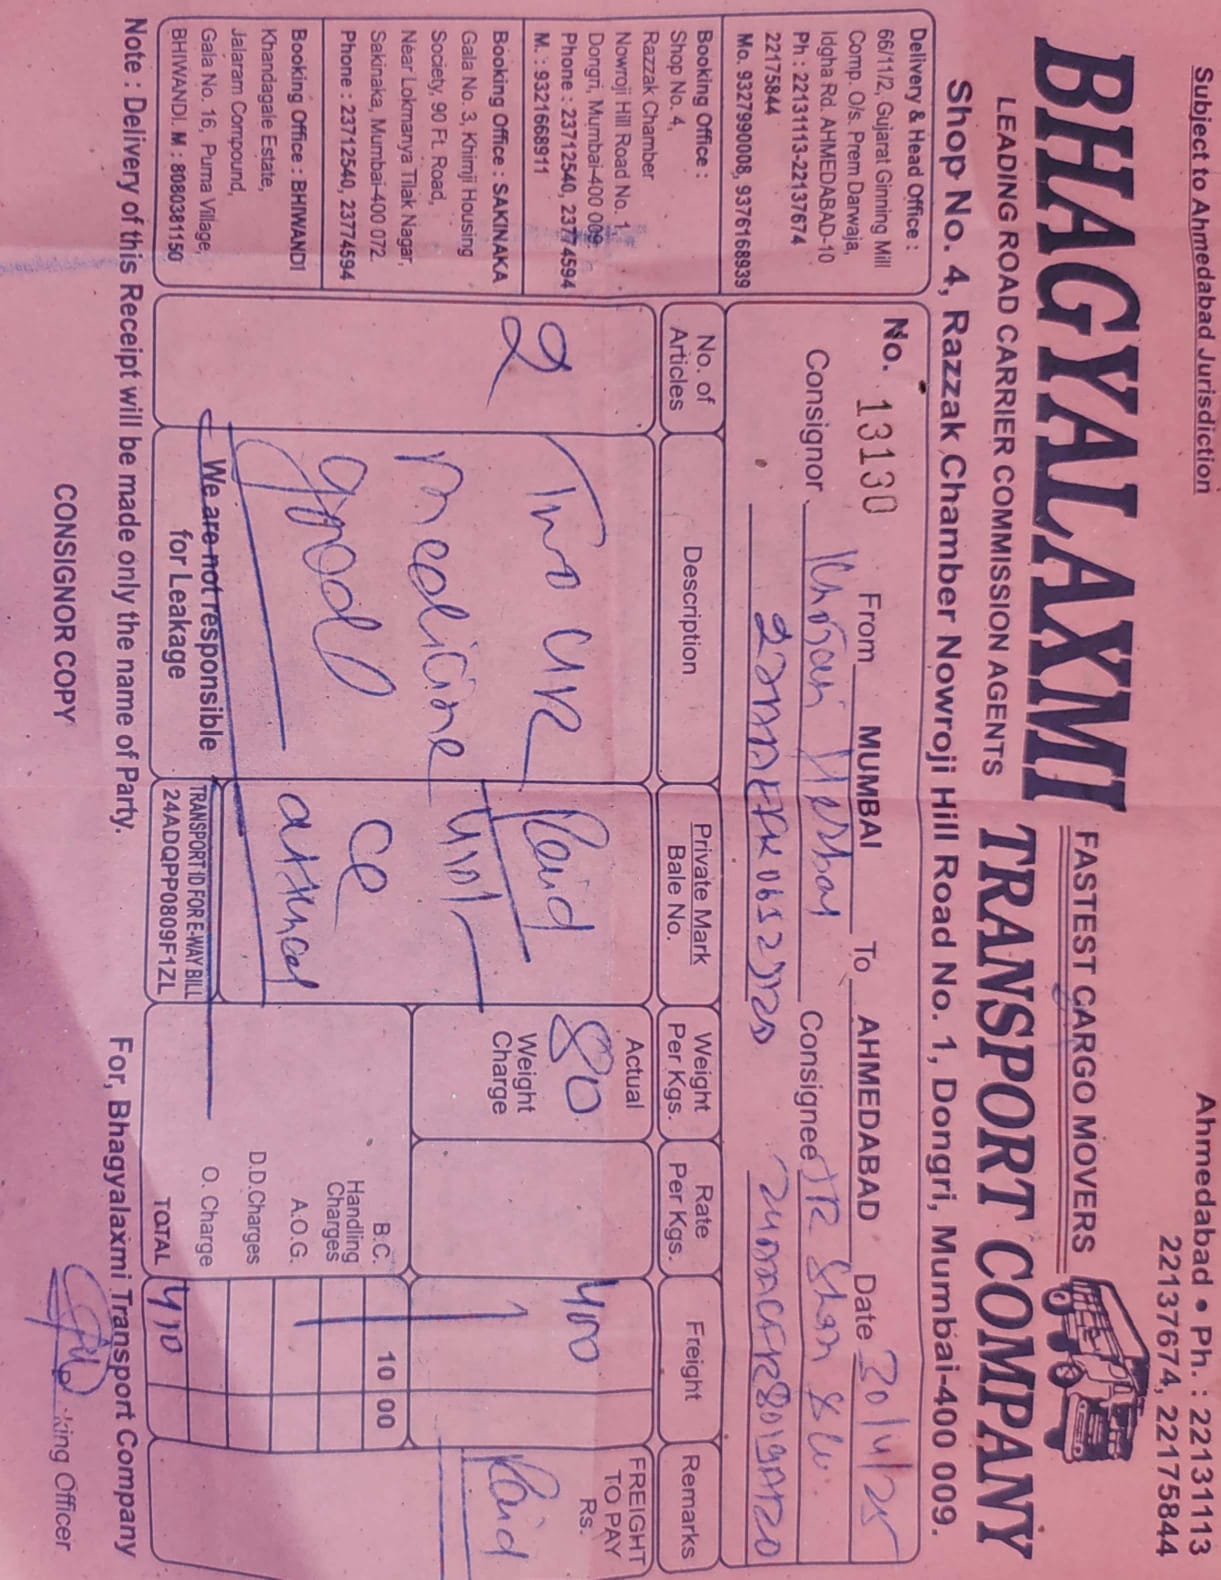 Subject to Ahmedabad Jurisdiction
Ahmedabad • Ph. : 22131113
22137674, 22175844
BHAGYALAXMI TRANSPORT COMPANY
FASTEST CARGO MOVERS
LEADING ROAD CARRIER COMMISSION AGENTS
Shop No. 4, Razzak Chamber Nowroji Hill Road No. 1, Dongri, Mumbai-400 009.
Delivery & Head Office :
66/11/2, Gujarat Ginning Mill
Comp. O/s. Prem Darwaja,
Idgha Rd. AHMEDABAD-10
Ph : 22131113-22137674
22175844
Mo. 9327990008, 9376168939
Booking Office :
Shop No. 4,
Razzak Chamber
Nowroji Hill Road No. 1,
Dongri, Mumbai-400 009.
Phone : 23712540, 23774594
M. : 9321668911
Booking Office : SAKINAKA
Gala No. 3, Khimji Housing
Society, 90 Ft. Road,
Near Lokmanya Tilak Nagar,
Sakinaka, Mumbai-400 072.
Phone : 23712540, 23774594
Booking Office : BHIWANDI
Khandagale Estate,
Jalaram Compound,
Gala No. 16, Purna Village,
BHIWANDI. M : 8080381150
No. 13130 From MUMBAI To AHMEDABAD Date 30/4/25
Consignor Consignee
No. of Articles
Description
Private Mark
Bale No.
Weight Per Kgs.
Rate Per Kgs.
Freight
Remarks
2
Two
medicine
good
Paid
410/-
Actual
80
Weight Charge
400
FREIGHT TO PAY Rs.
Paid
B.C. 10 00
Handling Charges
A.O.G.
D.D.Charges
O. Charge
TOTAL 410
We are not responsible
for Leakage
TRANSPORT ID FOR E-WAY BILL
24ADQPP0809F1ZL
Note : Delivery of this Receipt will be made only the name of Party.
For, Bhagyalaxmi Transport Company
CONSIGNOR COPY
Officer